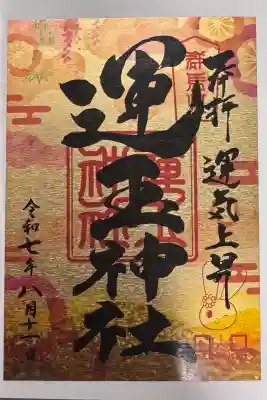 奉拝 運気上昇
運王神社
令和七年 八月十一日